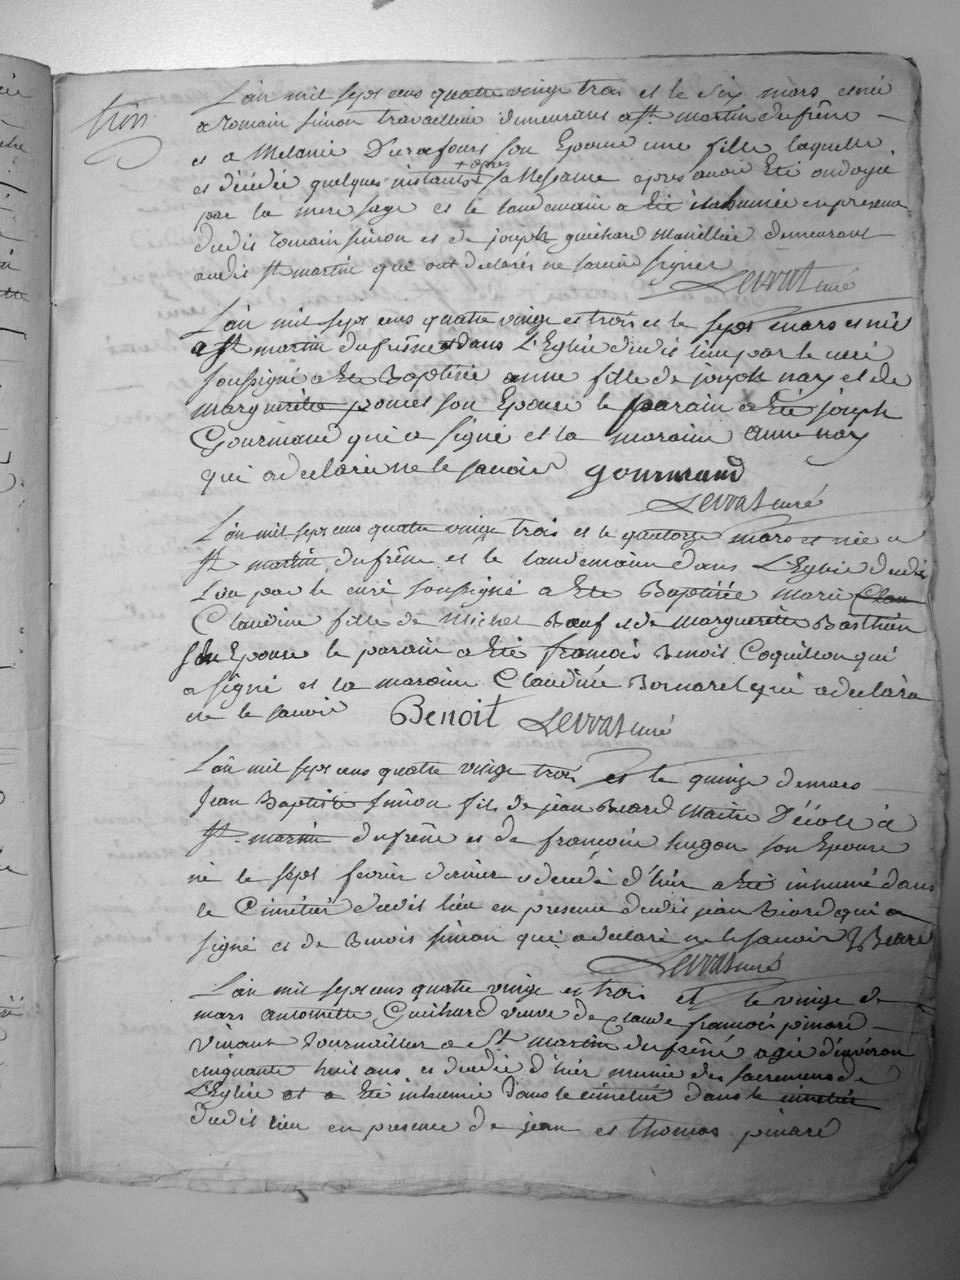 trois
L'an mil sept cens quatre vingt trois et le six mars est né
a romain simon travailleur demeurant a St martin du frêne
et a Melanie Durafour son Epouse une fille laquelle
est décédée quelques instants + après sa Nessance apres avoir Eté ondoyée
par la mere sage et le landemain a Eté inhumée en presence
dudit romain simon et de joseph guichard Manillier demeurant
audit St martin qui ont declarés ne savoir signer
Levrat curé
L'an mil sept cens quatre vingt et trois et le sept mars est née
a St martin du frêne et dans L'Eglise dudit lieu par le curé
soussigné a Eté Baptisée anne fille de joseph nay et de
marguerite poncet son Epouse le parain a Eté joseph
Gourmand qui a signé et la maraine anne nay
qui a declarée ne le savoir gourmand
Levrat curé
L'an mil sept cens quatre vingt trois et le quatorze mars est née a
St martin du frêne et le landemain dans L'Eglise dudit
Lieu par le curé soussigné a Eté Baptisée marie Clau
Claudine fille de Michel Bœuf et de Marguerite Basthien
son Epouse le parain a Eté francois Benoit Coquillon qui
a signé et la maraine Claudine Bornarel qui a declaré
ne le savoir Benoit Levrat curé
L'an mil sept cens quatre vingt trois et le quinze de mars
Jean Baptiste simon fils de jean Beard Maitre D'école à
St martin du frêne et de francoise hugon son Epouse
né le sept fevrier dernier et decedé d'hier a Eté inhumé dans
le Cimétier dudit lieu en presence dudit jean Biard qui a
signé et de Benoit simon qui a declaré ne le savoir Beard
Levrat curé
L'an mil sept cens quatre vingt et trois et le vingt de
mars antoinette Guichard veuve de Claude francois pinard
vivant journaillier a St martin du frêne agée d'environ
cinquante huit ans et decedée d'hier munie des sacremens de
L'Eglise et a Eté inhumée dans le cimetier dans le cimetier
dudit lieu en presence de jean et thomas pinard